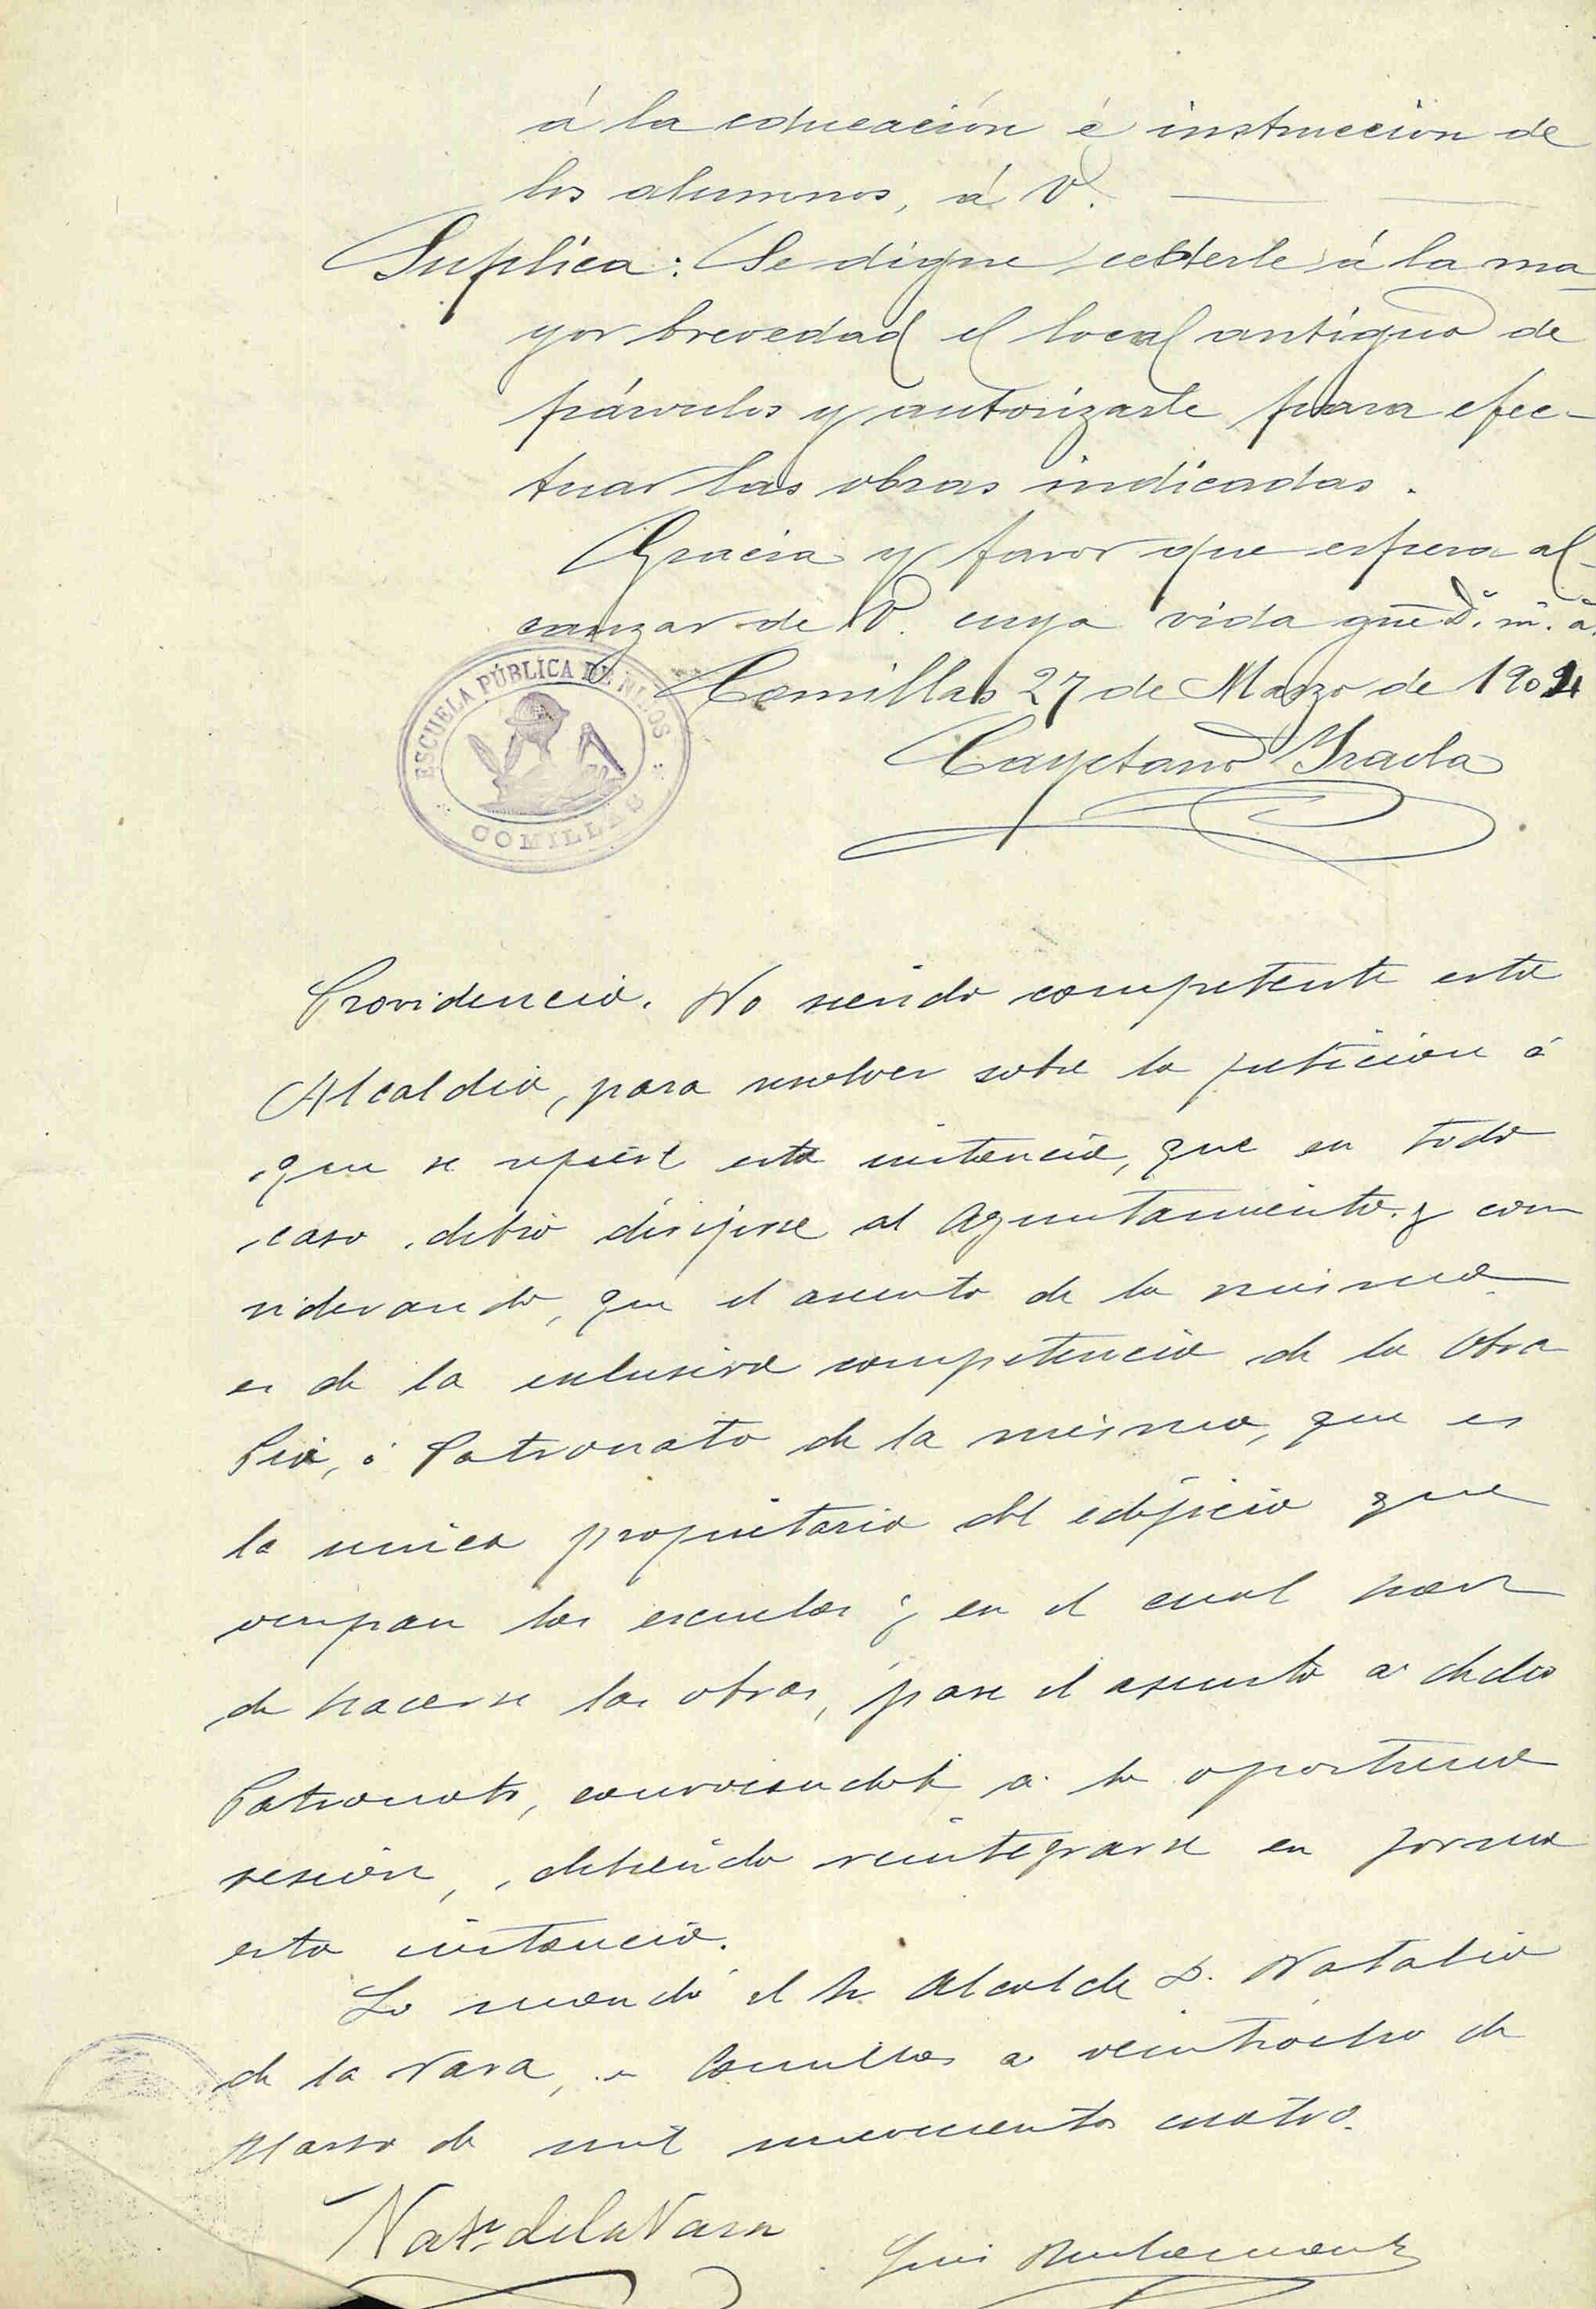 á la educación é instruccion de
los alumnos, á V.
Suplica: Se digne cederle á la ma-
yor brevedad el local antiguo de
párvulos y autorizarle para efec-
tuar las obras indicadas.
Gracia y favor que espera al-
canzar de V. cuya vida gue D. m. a.
Comillas 27 de Marzo de 1904
Cayetano Iraola
ESCUELA PÚBLICA DE NIÑOS
COMILLAS
Providencia. No siendo competente esta
Alcaldia, para resolver sobre la peticion á
que se refiere esta instancia, que en todo
caso debió dirijirse al Ayuntamiento y con
siderando, que el asunto de la misma
es de la esclusiva competencia de la Obra
Pia, ó Patronato de la misma, que es
la unica propietaria del edificio que
ocupan las escuelas y en el cual han
de hacerse las obras, pase el asunto a dicho
Patronato, convocandole a la oportuna
sesión, debiendo reintegrarse en forma
esta instancia.
Lo mandó el Sr Alcalde D. Natalio
de la Vara, en Comillas a veintiocho de
Marzo de mil novecientos cuatro.
Nat.º de la Vara
Luis